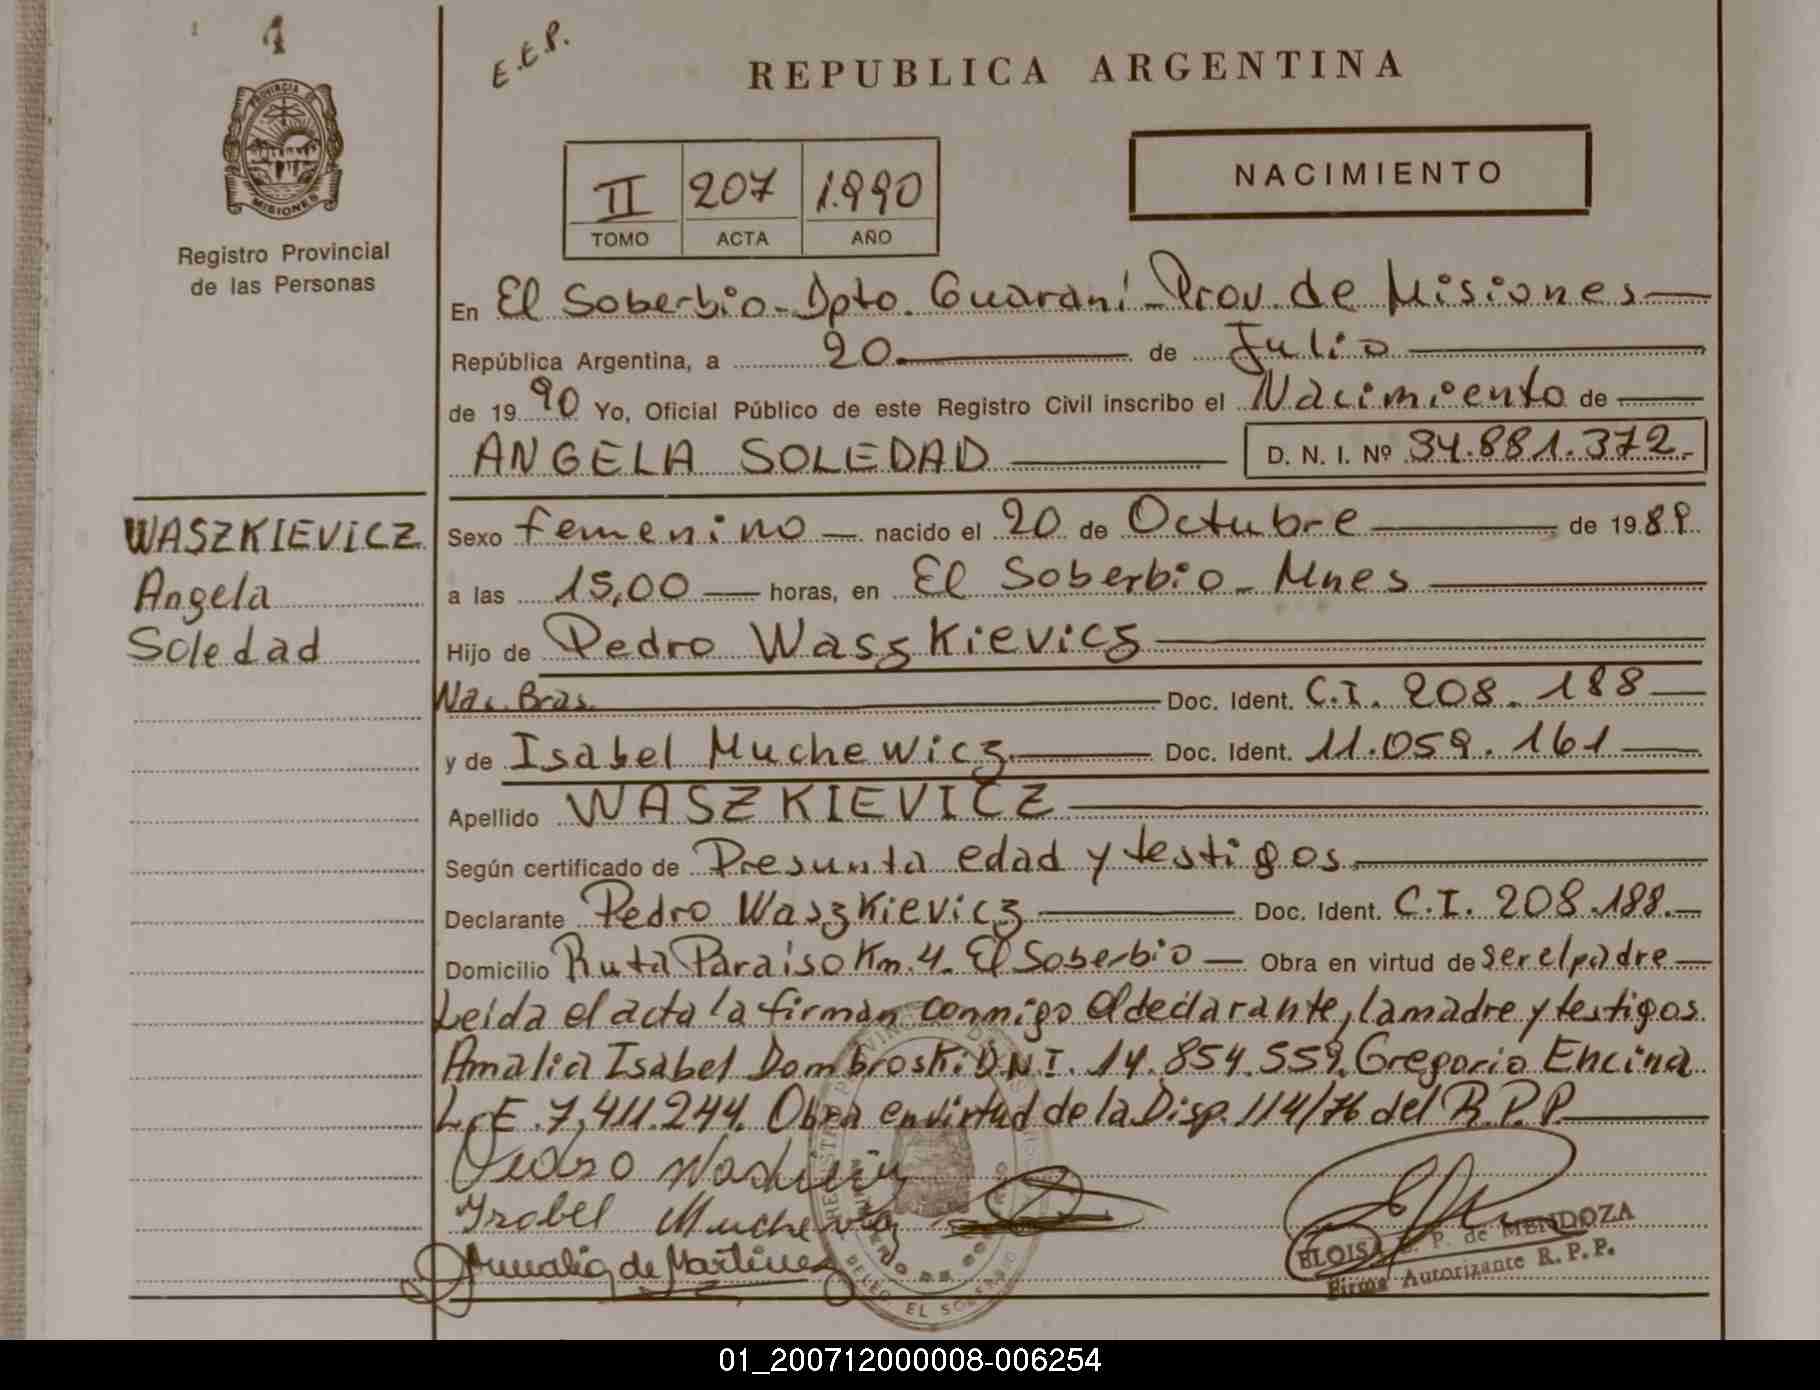 1
E.E.P.
REPUBLICA ARGENTINA
PROVINCIA DE
MISIONES
Registro Provincial
de las Personas
II 207 1.990
TOMO ACTA AÑO
NACIMIENTO
En El Soberbio - Dpto. Guaraní - Prov. de Misiones
República Argentina, a 20 de Julio
de 1990 Yo, Oficial Público de este Registro Civil inscribo el Nacimiento de
ANGELA SOLEDAD D. N. I. Nº 34.881.372.-
WASZKIEVICZ
Angela
Soledad
Sexo femenino nacido el 20 de Octubre de 1989
a las 15,00 horas, en El Soberbio - Mnes
Hijo de Pedro Waszkievicz
Nac. Bras. Doc. Ident. C.I. 208.188
y de Isabel Muchewicz Doc. Ident. 11.059.161
Apellido WASZKIEVICZ
Según certificado de Presunta edad y testigos.
Declarante Pedro Waszkievicz Doc. Ident. C.I. 208.188.
Domicilio Ruta Paraiso Km. 4. El Soberbio Obra en virtud de ser el padre
Leída el acta la firman conmigo el declarante, la madre y testigos.
Amalia Isabel Dombroski D.N.I. 14.854.559. Gregorio Encina
L.E. 7.411.244. Obra en virtud de la Disp. 114/76 del R.P.P.
Pedro
Isabel
Amalia de Martinez
EL SOBERBIO
ELOISA P. de MENDOZA
Firma Autorizante R. P. P.
01_200712000008-006254